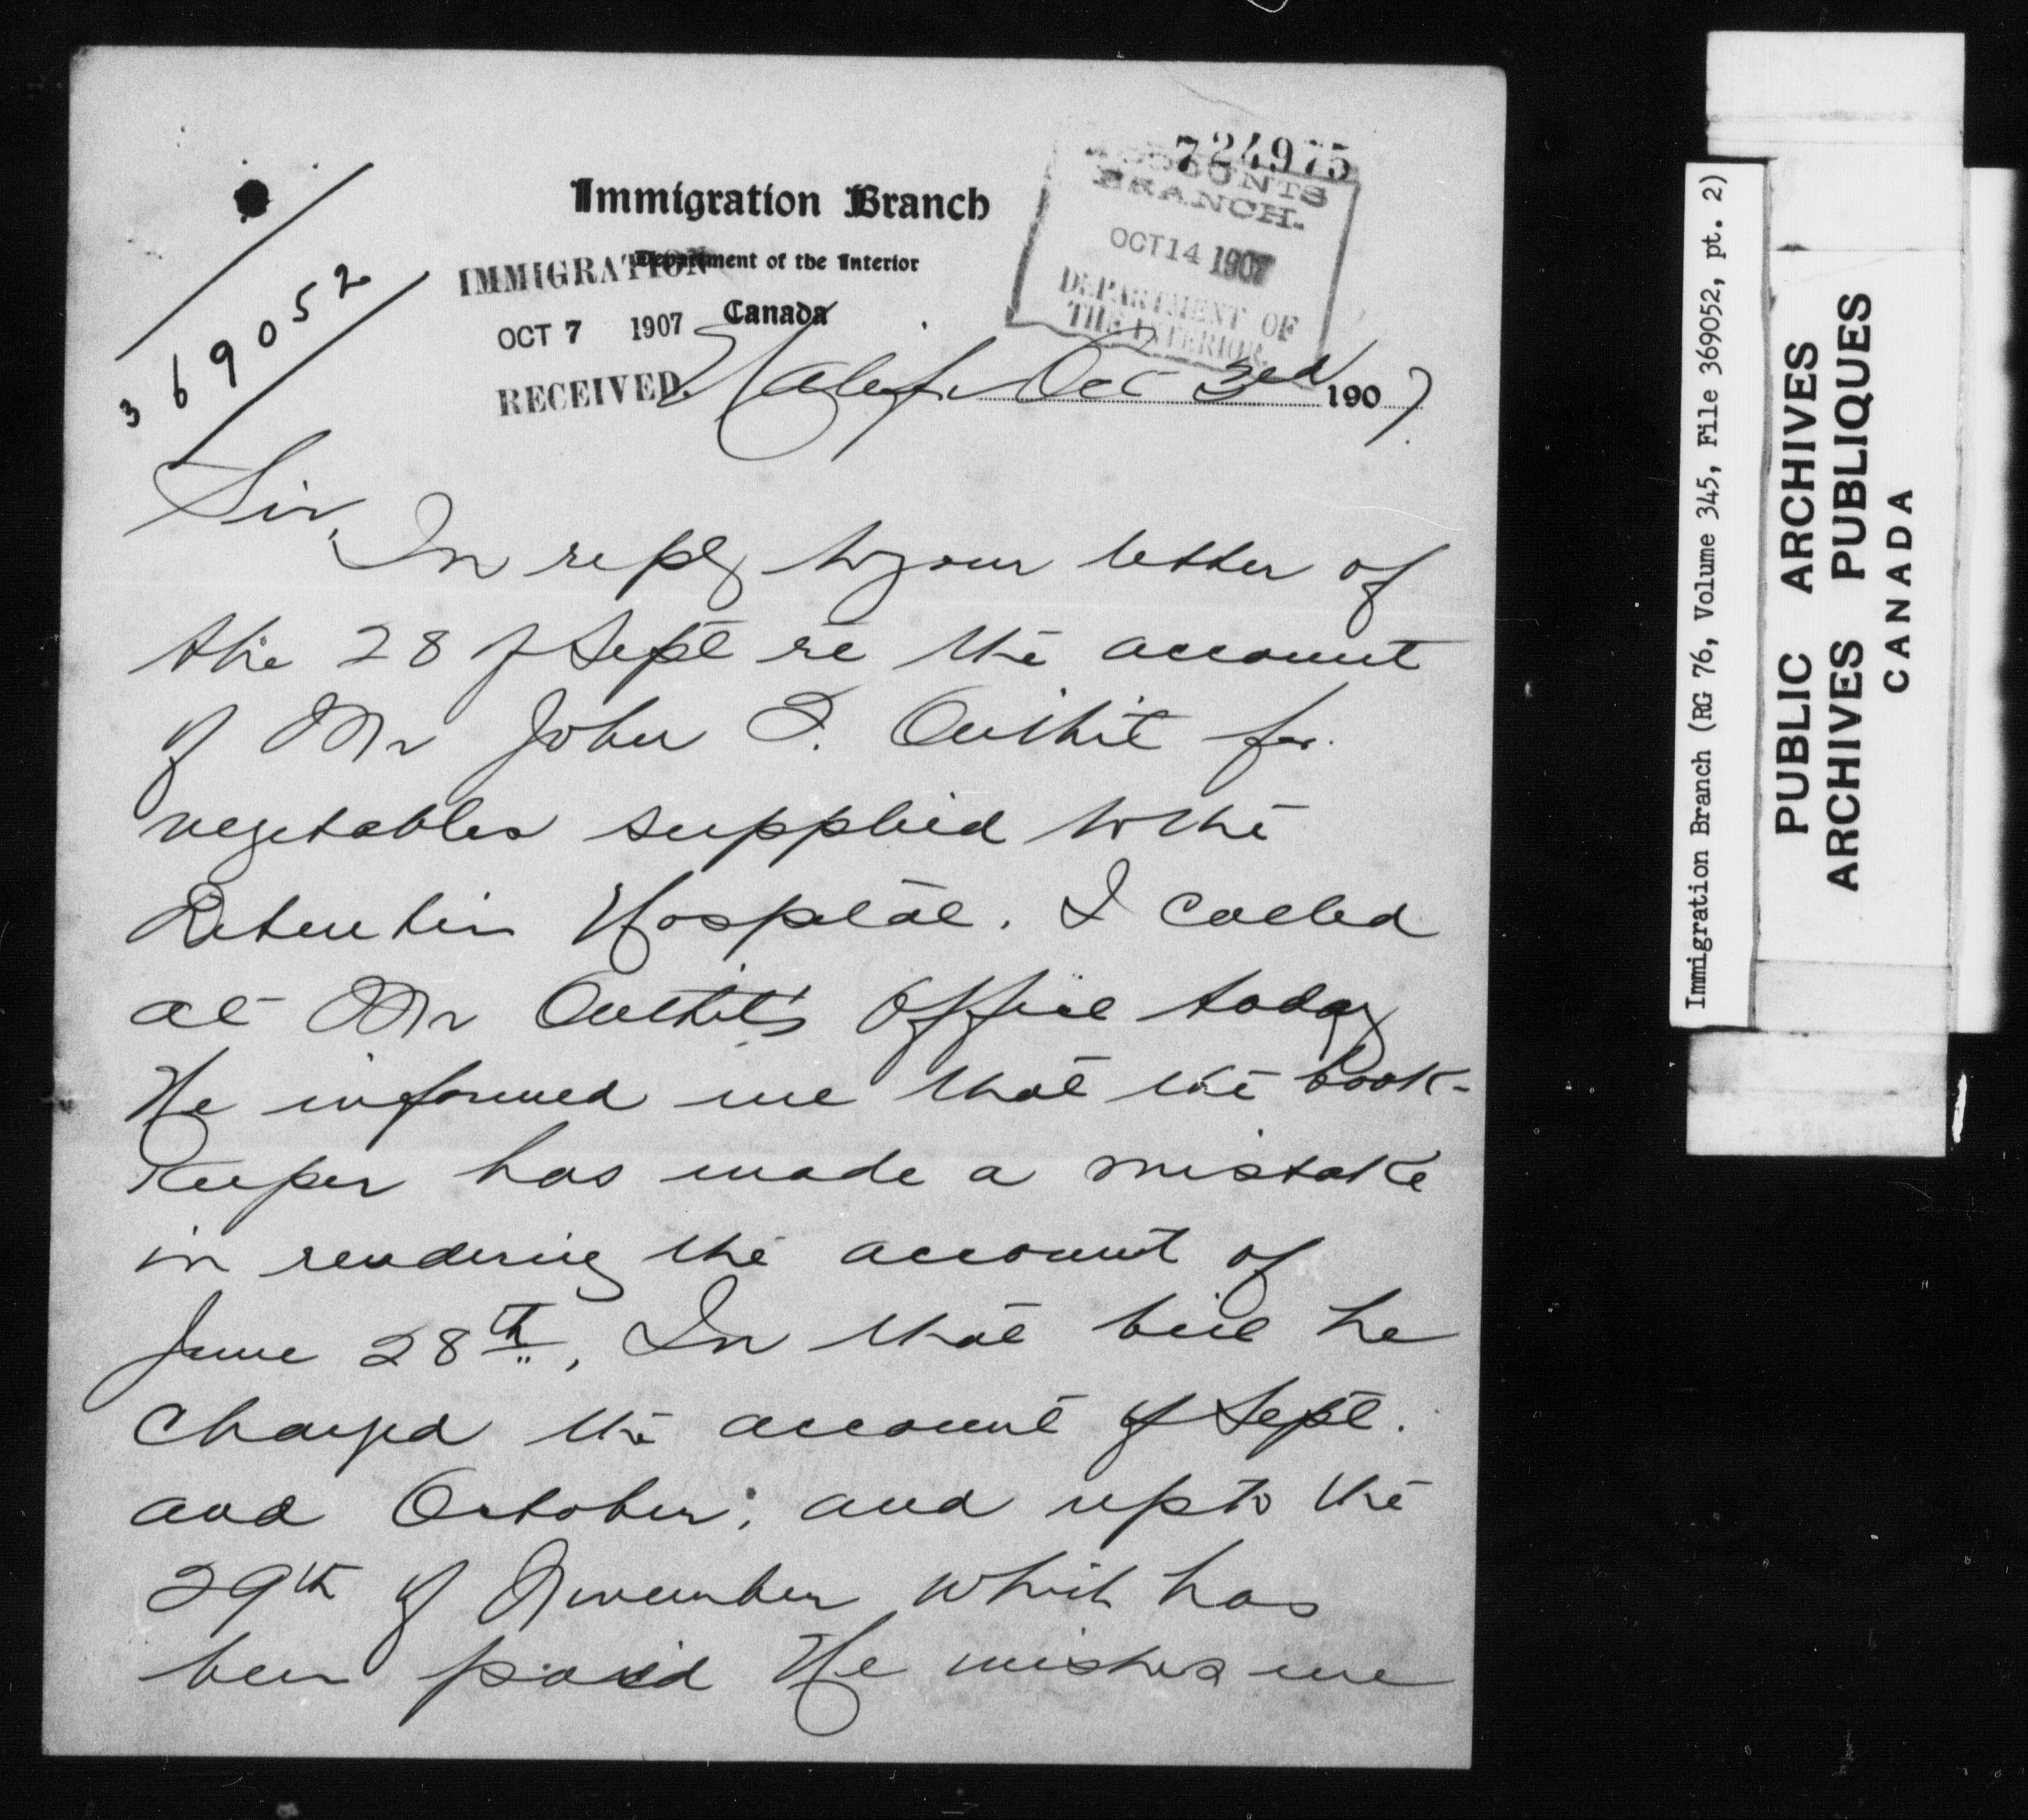 724975
ACCOUNTS
BRANCH.
OCT 14 1907
DEPARTMENT OF
THE INTERIOR
Immigration Branch
Department of the Interior
Canada
IMMIGRATION
OCT 7 1907
RECEIVED
369052
Halifx Oct 3rd 1907
Sir,
In reply to your letter of
the 28 of Sept re the account
of Mr John I. Outhit for
vegetables supplied to the
Detention Hospital. I called
at Mr Outhit's Office today
He informed me that the book-
keeper has made a mistake
in rendering the account of
June 28th, In that bill he
charged the account of Sept.
and October; and up to the
29th of November which has
been paid He wishes me
Immigration Branch (RG 76, Volume 345, File 369052, pt. 2)
PUBLIC ARCHIVES
ARCHIVES PUBLIQUES
CANADA